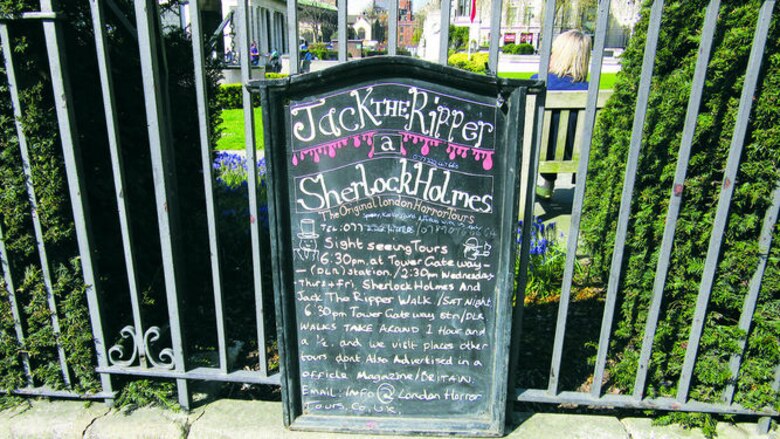 Jack THE Ripper
a
Sherlock Holmes
The Original London Horror Tours
Tel: 077
Sight seeing Tours
6:30pm at Tower Gateway -
- (DLR) station. / 2:30pm Wednesday
Thurs + fri, Sherlock Holmes And
Jack The Ripper WALK / SAT Night
6:30pm Tower Gateway stn/DLR
WALKS TAKE AROUND 1 Hour and
a ½. and we visit places other
tours dont Also Advertised in a
officle Magazine/BRITAIN.
Email: Info@London Horror
Tours.Co.UK.